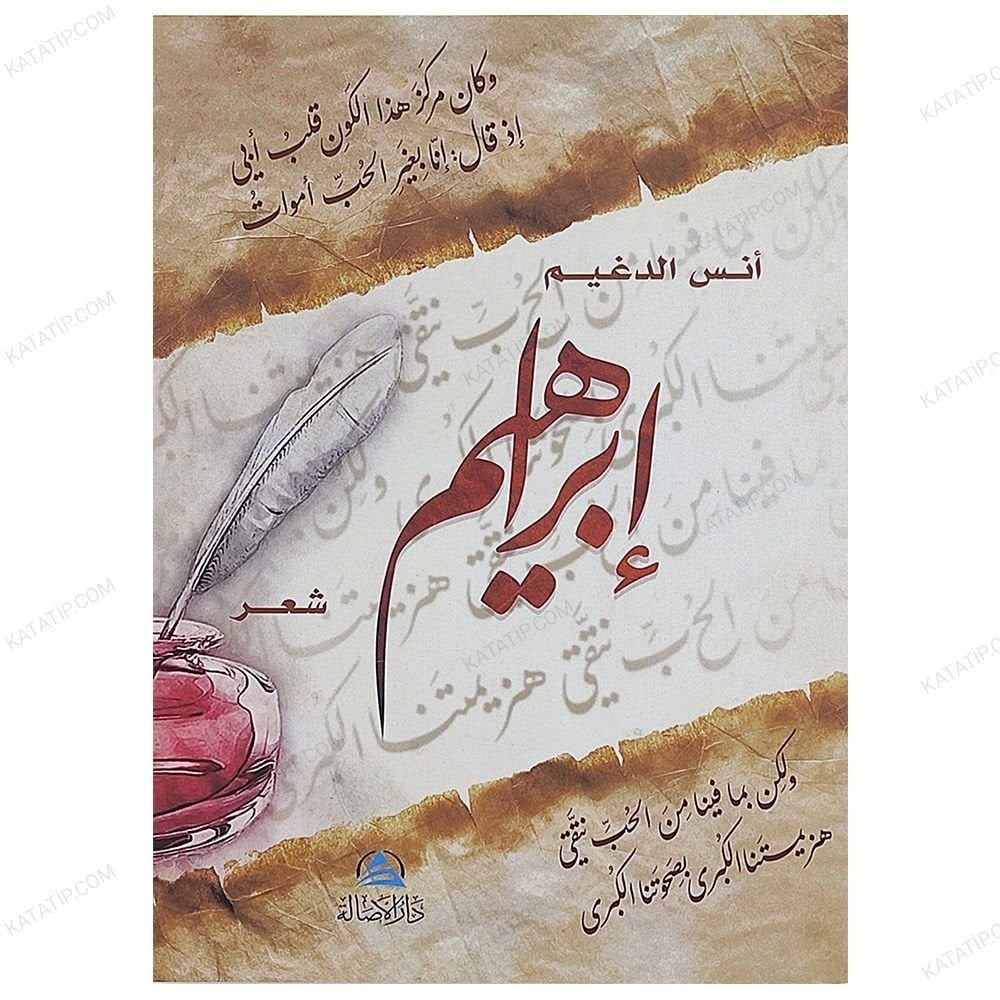 وكان مركز هذا الكون قلب أبي
إذ قال: إنّا بغير الحبّ أمواتُ
أنس الدغيم
إبراهيم
شعر
ولكن بما فينا مِنَ الحبّ نتّقي
هزيمتنا الكبرى بصحوتنا الكبرى
دار الأصالة
KATATIP.COM